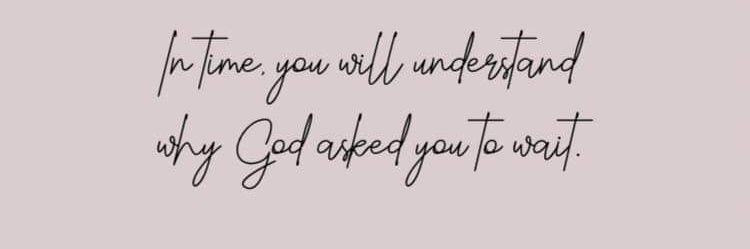 In time, you will understand
why God asked you to wait.